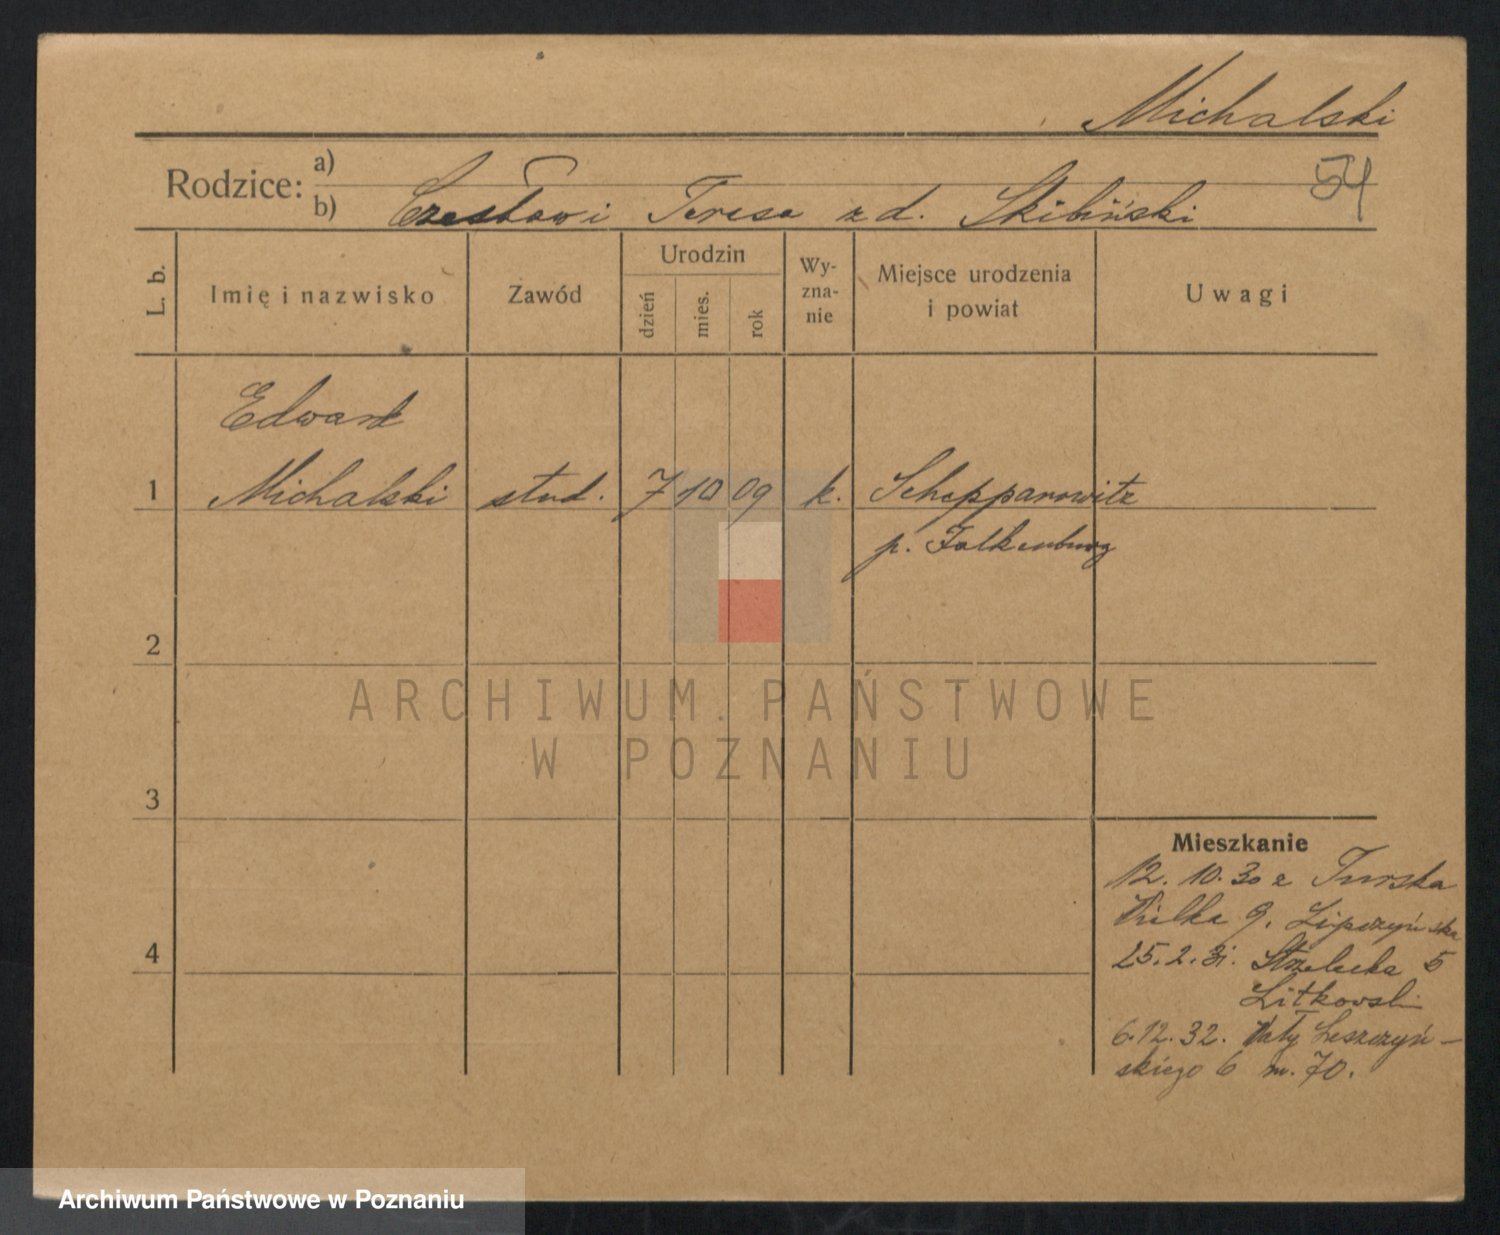 Michalski
Rodzice:
a)
b) Czesław i Teresa z d. Skibiński
54
L. b.
Imię i nazwisko
Zawód
Urodzin
dzień
mies.
rok
Wy-
zna-
nie
Miejsce urodzenia
i powiat
Uwagi
Edward
1 Michalski stud. 7 10 09 k. Schepparowitz
p. Falkenburg
2
ARCHIWUM PAŃSTWOWE
W POZNANIU
3
Mieszkanie
12. 10. 30 z Turska
Wielka 9. Lipczyńska
4
25. 2. 31. Strzelecka 5
Litkowski
6. 12. 32. Wały Leszczyń-
skiego 6 m. 70.
Archiwum Państwowe w Poznaniu